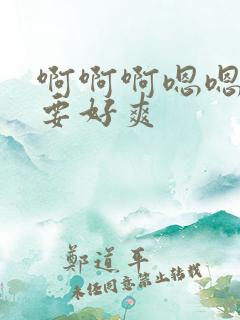 啊啊啊嗯嗯
要好爽
鄭道平
未经同意禁止转载